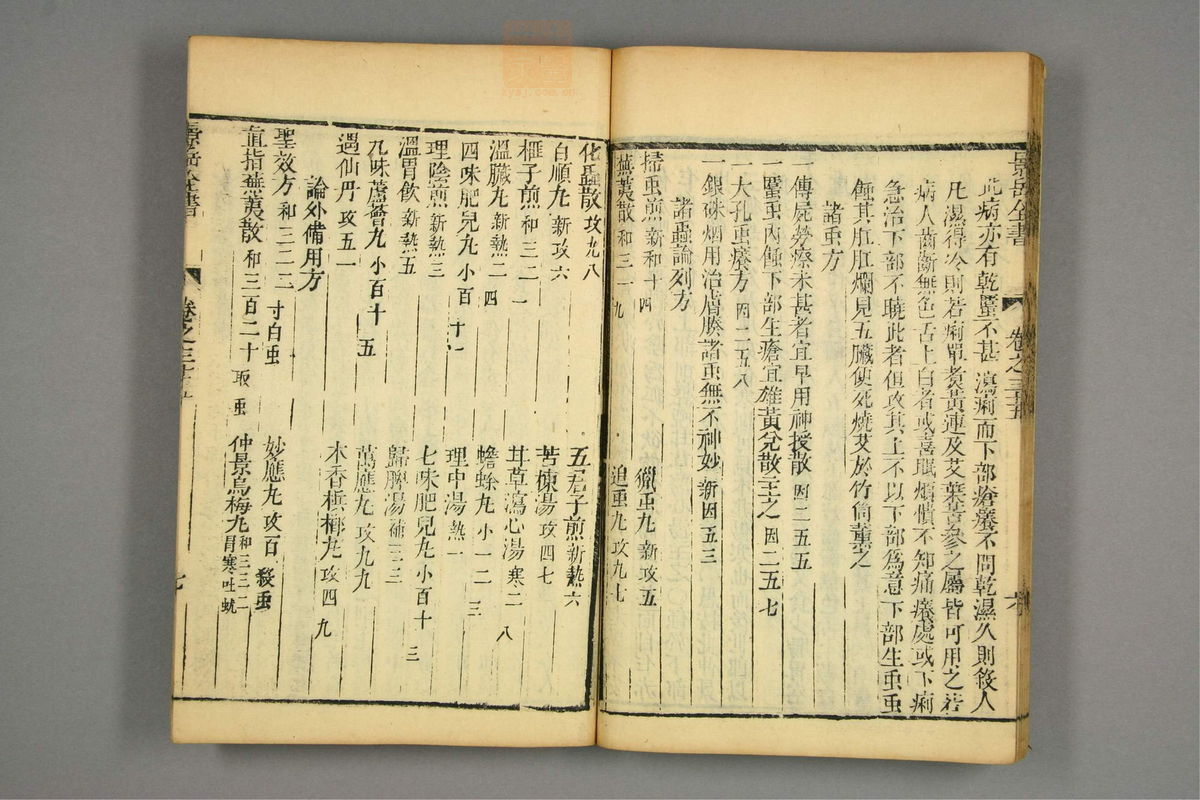 景岳全書 卷之三十五
此病亦有乾䘌不甚瀉痢而下部瘡癢不問乾濕久則殺人
凡濕得冷則若痢單煮黃連及艾葉苦參之屬皆可用之若
病人齒齗無色舌上白者或喜眠煩憒不知痛癢處或下痢
急治下部不曉此者但攻其上不以下部為意下部生虫虫
蝕其肛肛爛見五臟便死燒艾於竹筒薰之
諸虫方
一傳屍勞瘵未甚者宜早用神授散 因二五五
一䘌虫內蝕下部生瘡宜雄黃兌散主之 因二五七
一大孔虫癢方 因二五八
一銀硃烟用治
諸虫無不神妙 新因五三
諸蟲論列方
掃虫煎 新和十四
獵虫丸 新攻五
蕪荑散 和三一九
追虫丸 攻九七
化䘌散 攻九八
五君子煎 新熱六
百順丸 新攻六
苦楝湯 攻四七
榧子煎 和三二一
甘草瀉心湯 寒二八
溫臟丸 新熱二四
蟾蜍丸 小一二三
四味肥兒丸 小百十一
理中湯 熱一
理陰煎 新熱三
七味肥兒丸 小百十三
溫胃飲 新熱五
歸脾湯 補三二
九味蘆薈丸 小百十五
萬應丸 攻九九
遇仙丹 攻五一
木香檳榔丸 攻四九
論外備用方
聖效方 和三二二 寸白虫
妙應丸 攻百 殺虫
直指蕪荑散 和三百二十 取虫
仲景烏梅丸 和三二三 胃寒吐蚘
景岳全書 卷之三十五 七